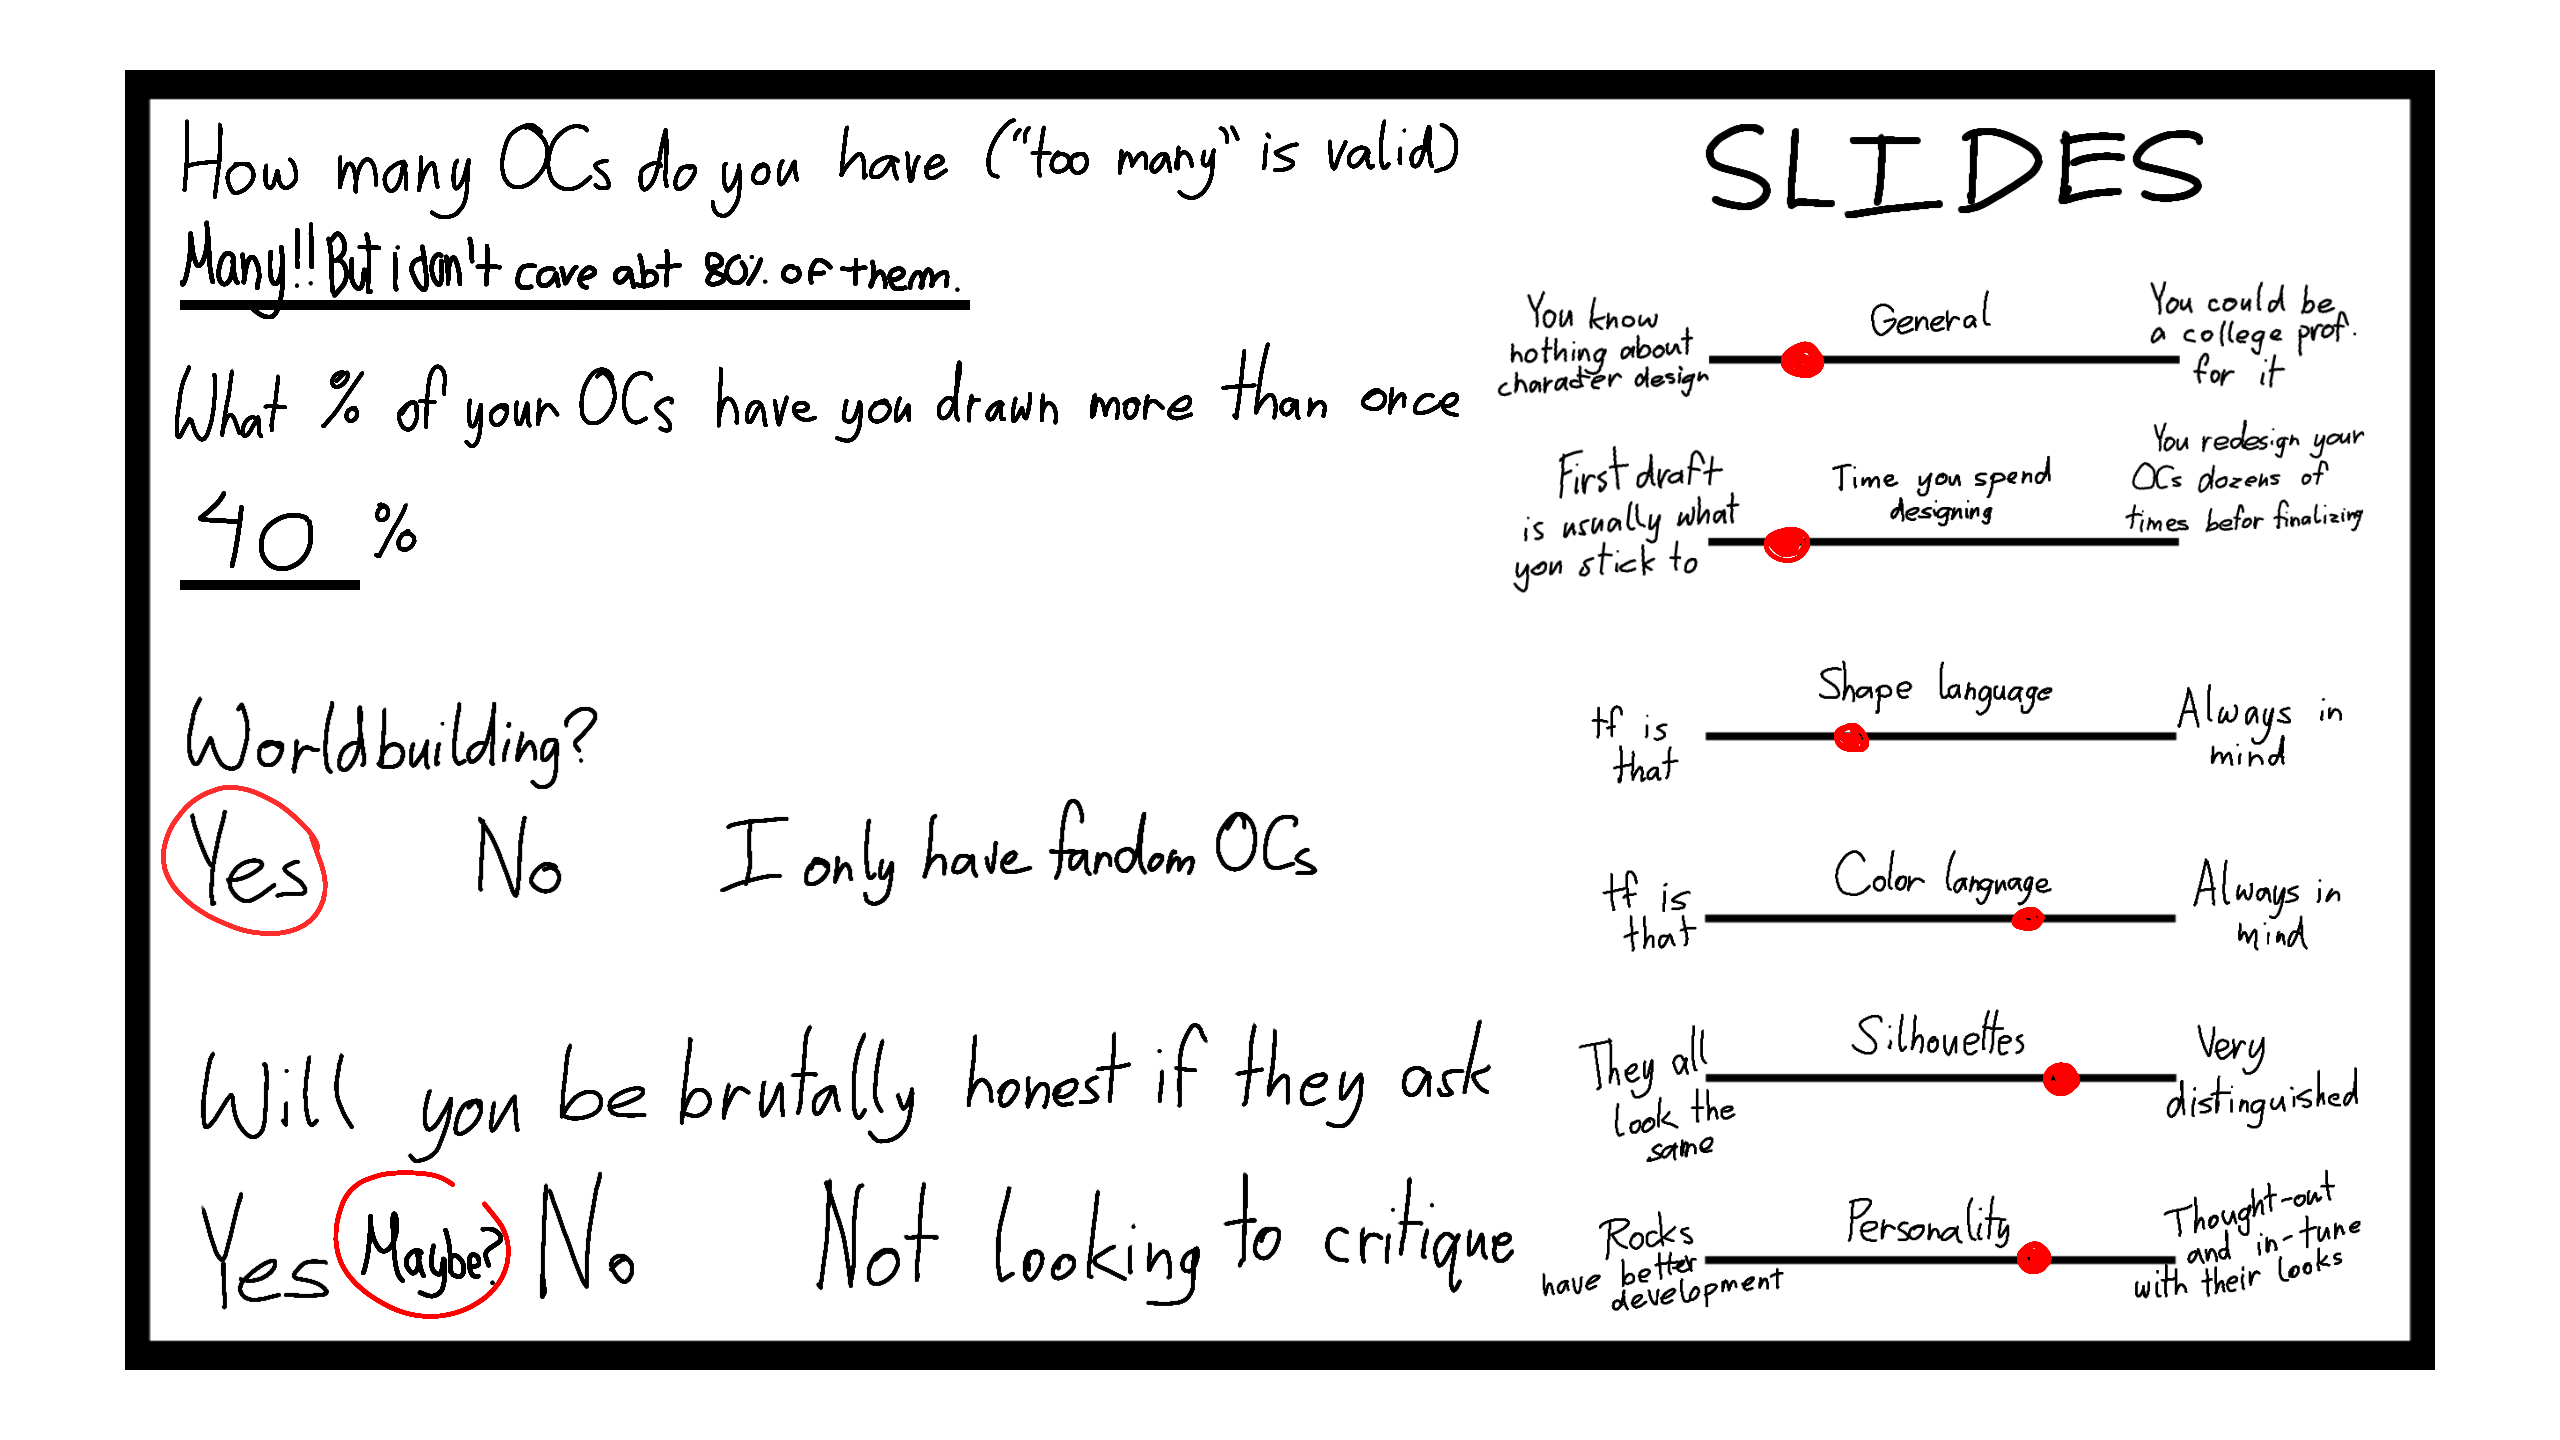 How many OCs do you have ("too many" is valid)
Many!! But i don't cave abt 80% of them.
What % of your OCs have you drawn more than once
40 %
Worldbuilding?
Yes No I only have fandom OCs
Will you be brutally honest if they ask
Yes Maybe? No Not looking to critique
SLIDES
General
You know
nothing about
character design
You could be
a college prof.
for it
Time you spend
designing
First draft
is usually what
you stick to
You redesign your
OCs dozens of
times befor finalizing
Shape language
tf is
that
Always in
mind
Color language
tf is
that
Always in
mind
Silhouettes
They all
look the
same
Very
distinguished
Personality
Rocks
have better
development
Thought-out
and in-tune
with their looks